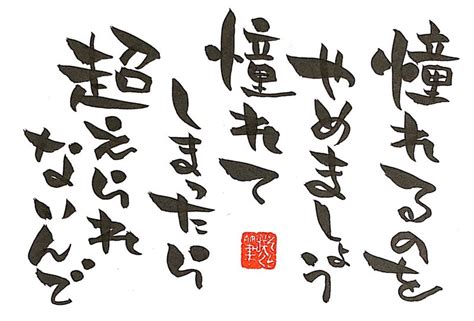 憧れるのを
やめましょう
憧れて
しまったら
超えられ
ないんで